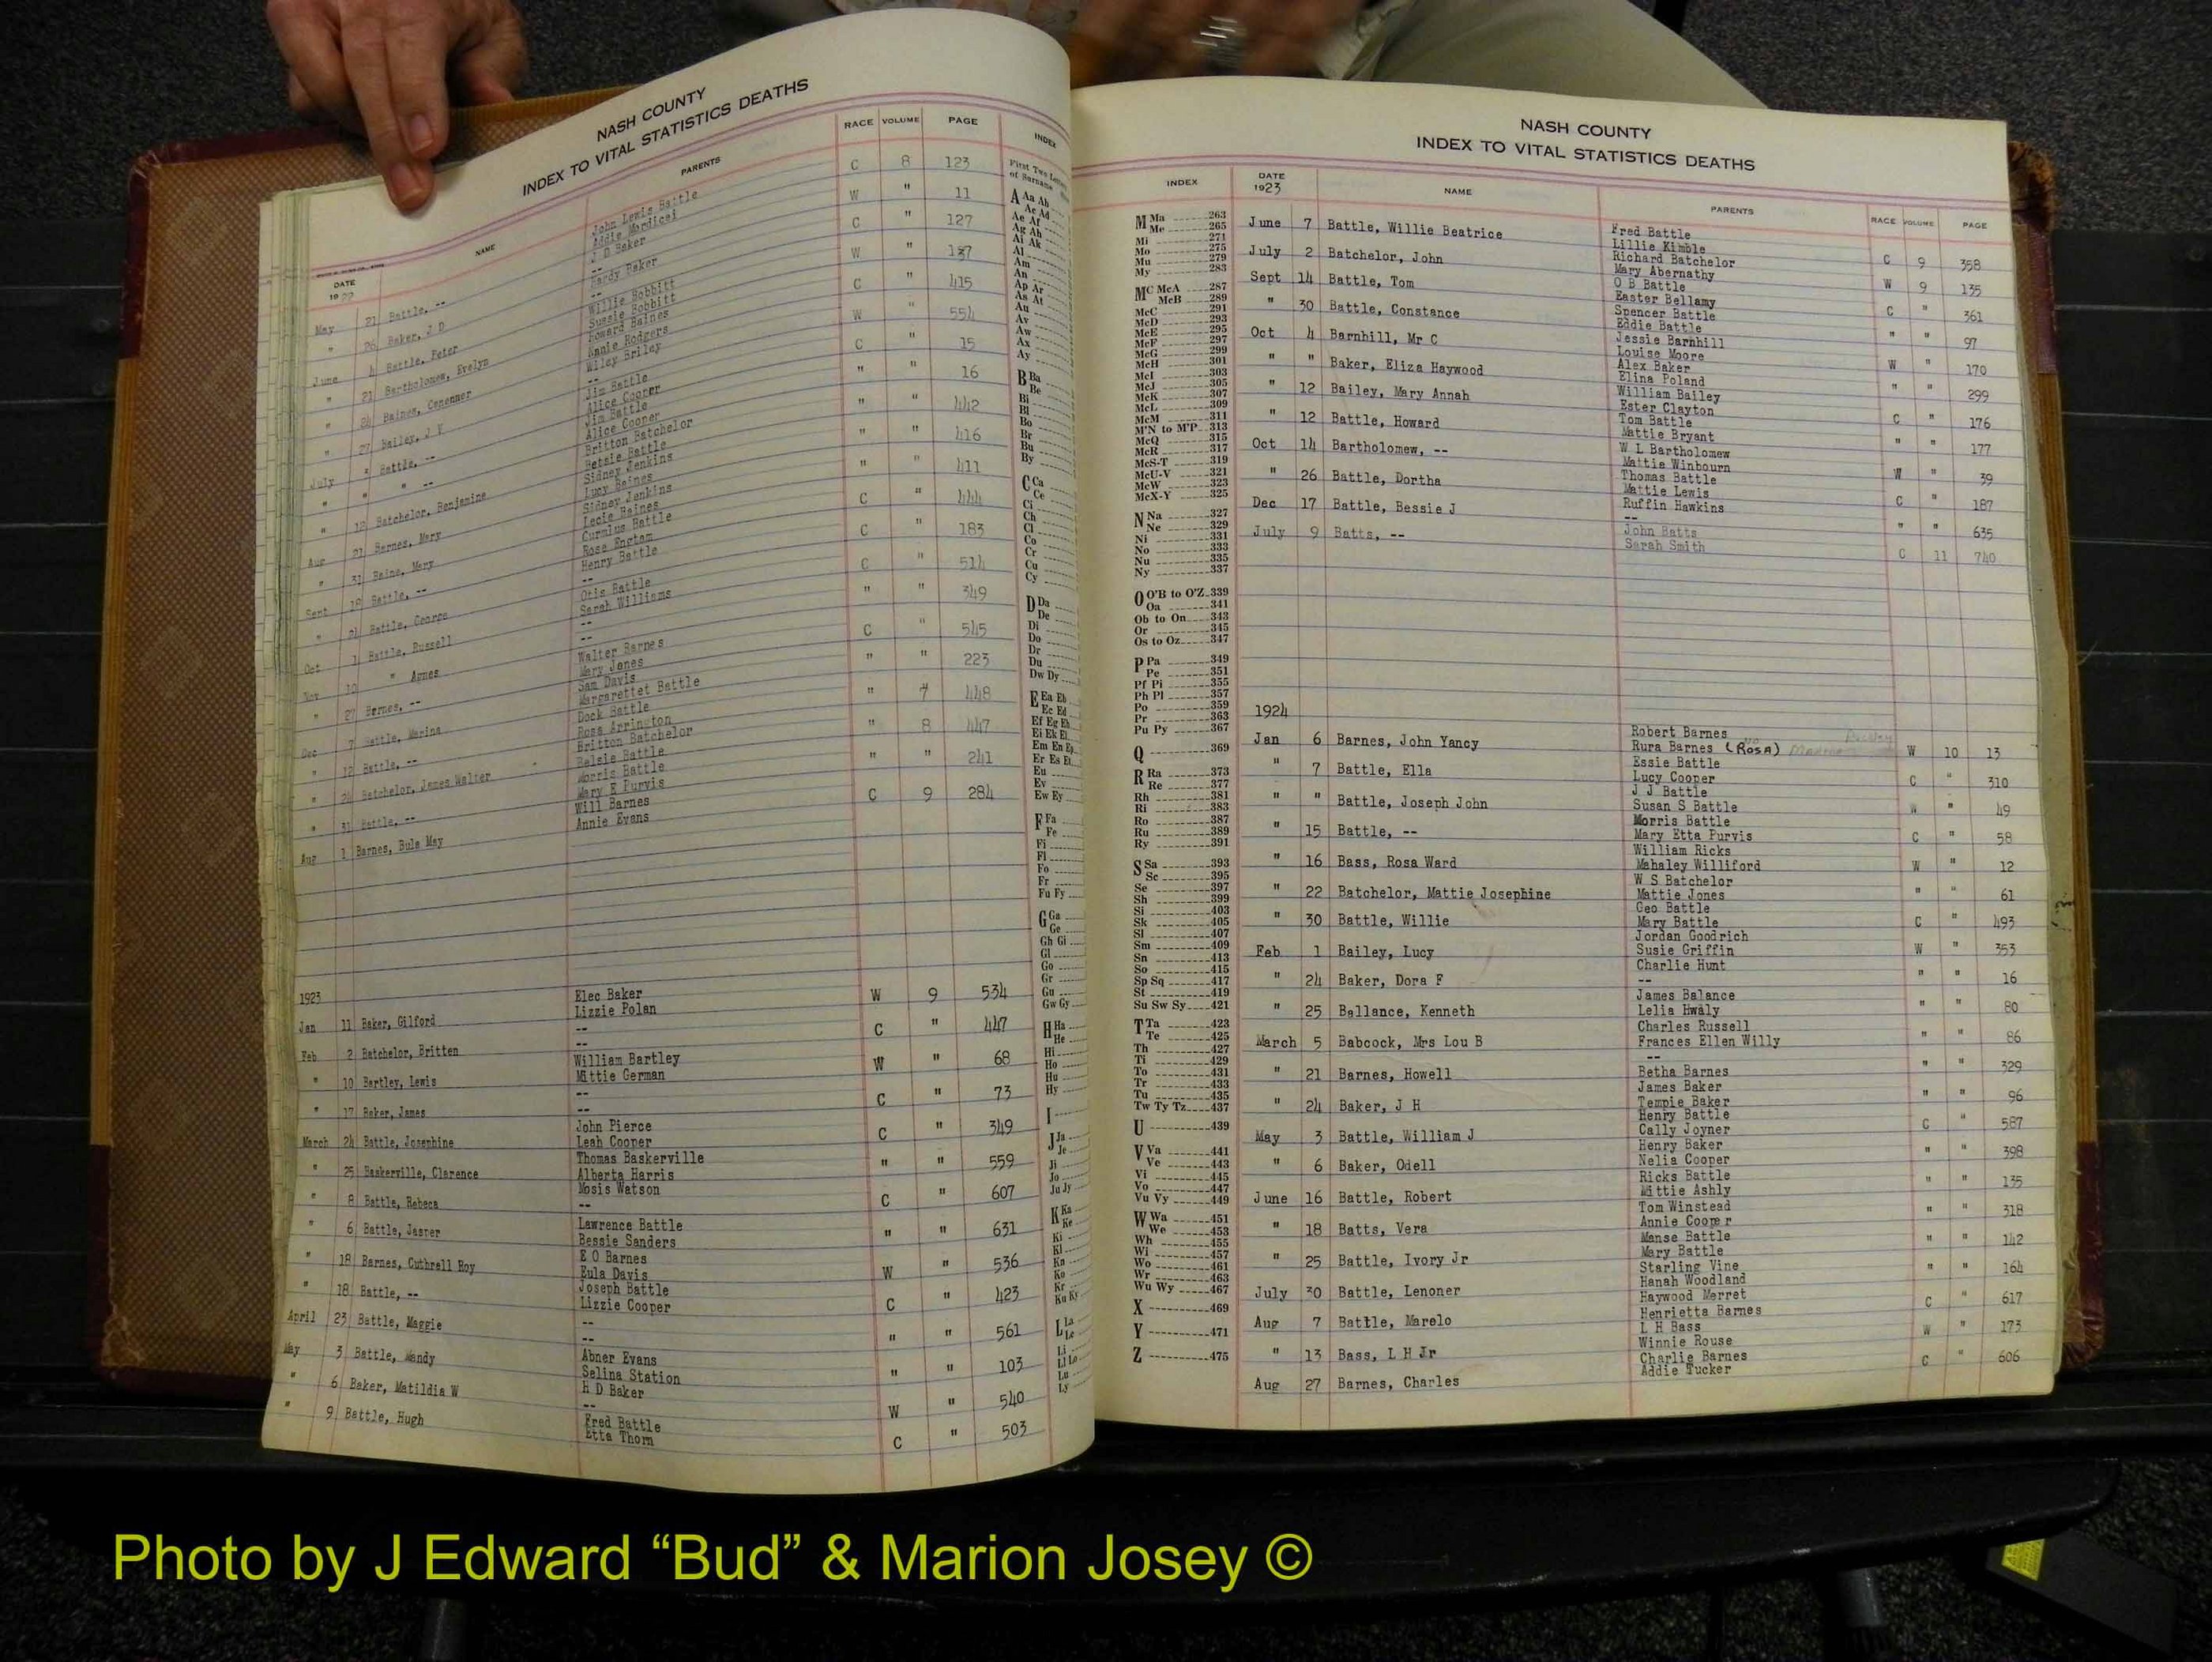 NASH COUNTY
INDEX TO VITAL STATISTICS DEATHS
DATE NAME PARENTS RACE VOLUME PAGE
1922
May 21 Battle, -- John Lewis Battle C 8 123
Addie Mordicai
" 26 Baker, J D J D Baker W " 11
--
June 4 Battle, Peter Hardy Baker C " 127
--
" 21 Bartholomew, Evelyn Willie Bobbitt W " 137
Sussie Bobbitt
" 24 Baines, Howard Baines C " 415
Annie Rodgers
" 27 Bailey, J Wiley Briley W " 554
--
July " Battle, -- Jim Battle C " 15
Alice Cooper
" " " -- Jim Battle " " 16
Alice Cooper
" 12 Batchelor, Benjamine Britton Batchelor " " 442
Betsie Battle
Aug 21 Barnes, Mary Sidney Jenkins " " 416
Lucy Baines
" 31 Baine, Mary Sidney Jenkins " " 411
Lecie Baines
Sept 19 Battle, -- Battle C " 444
Rose
" 21 Battle, George Henry Battle C " 183
--
Oct 1 Battle, Russell Otis Battle C " 514
Sarah Williams
Nov 10 " Agnes -- " " 349
--
" 27 Barnes, -- Walter Barnes C " 545
Mary Jones
Dec 7 Battle, Marina Sam Davis " " 223
Margarettet Battle
" 12 Battle, -- Dock Battle " 7 448
Rosa Arrington
" 24 Batchelor, James Walter Britton Batchelor " 8 447
Belsie Battle
" 31 Battle, -- Morris Battle " " 241
Mary E Purvis
Aug 1 Barnes, Bula May Will Barnes C 9 284
Annie Evans
1923
Jan 11 Baker, Gilford Elec Baker W 9 534
Lizzie Polan
Feb 2 Batchelor, Britten -- C " 447
--
" 10 Bartley, Lewis William Bartley W " 68
Mittie German
" 17 Baker, James -- C " 73
--
March 24 Battle, Josephine John Pierce C " 349
Leah Cooper
" 25 Baskerville, Clarence Thomas Baskerville " " 559
Alberta Harris
" 8 Battle, Rebeca Mosis Watson C " 607
--
" 6 Battle, Jasper Lawrence Battle " " 631
Bessie Sanders
" 18 Barnes, Cuthrell Roy E O Barnes W " 536
Eula Davis
" 18 Battle, -- Joseph Battle C " 423
Lizzie Cooper
April 23 Battle, Maggie -- " " 561
--
May 3 Battle, Mandy Abner Evans " " 103
Selina Station
" 6 Baker, Matildia W H D Baker W " 540
--
" 9 Battle, Hugh Fred Battle C " 503
Etta Thorn
INDEX
First Two Letters
of Surname
A Aa Ab
Ac Ad
Ae Af
Ag Ah
Ai Ak
Al
Am
An
Ap Ar
As At
Au
Av
Aw
Ax
Ay
B Ba
Be
Bi
Bl
Bo
Br
Bu
By
C Ca
Ce
Ci
Ch
Cl
Co
Cr
Cu
Cy
D Da
De
Di
Do
Dr
Du
Dw Dy
E Ea Eb
Ec Ed
Ef Eg Eh
Ei Ek El
Em En Ep
Er Es Et
Eu
Ev
Ew Ey
F Fa
Fe
Fi
Fl
Fo
Fr
Fu Fy
G Ga
Ge
Gh Gi
Gl
Go
Gr
Gu
Gw Gy
H Ha
He
Hi
Ho
Hu
Hy
I
J Ja
Je
Ji
Jo
Ju Jy
K Ka
Ke
Ki
Kl
Kn
Ko
Kr
Ku Ky
L La
Le
Li
Ll Lo
Lu
Ly
NASH COUNTY
INDEX TO VITAL STATISTICS DEATHS
INDEX
M Ma 263
Me 265
Mi 271
Mo 275
Mu 279
My 283
Mc McA 287
McB 289
McC 291
McD 293
McE 295
McF 297
McG 299
McH 301
McI 303
McJ 305
McK 307
McL 309
McM 311
M'N to M'P 313
McQ 315
McR 317
McS-T 319
McU-V 321
McW 323
McX-Y 325
N Na 327
Ne 329
Ni 331
No 333
Nu 335
Ny 337
O O'B to O'Z 339
Oa 341
Ob to On 343
Or 345
Os to Oz 347
P Pa 349
Pe 351
Pf Pi 355
Ph Pl 357
Po 359
Pr 363
Pu Py 367
Q 369
R Ra 373
Re 377
Rh 381
Ri 383
Ro 387
Ru 389
Ry 391
S Sa 393
Sc 395
Se 397
Sh 399
Si 403
Sk 405
Sl 407
Sm 409
Sn 413
So 415
Sp Sq 417
St 419
Su Sw Sy 421
T Ta 423
Te 425
Th 427
Ti 429
To 431
Tr 433
Tu 435
Tw Ty Tz 437
U 439
V Va 441
Ve 443
Vi 445
Vo 447
Vu Vy 449
W Wa 451
We 453
Wh 455
Wi 457
Wo 461
Wr 463
Wu Wy 467
X 469
Y 471
Z 475
DATE NAME PARENTS RACE VOLUME PAGE
1923
June 7 Battle, Willie Beatrice Fred Battle C 9 358
Lillie Kimble
July 2 Batchelor, John Richard Batchelor W 9 135
Mary Abernathy
Sept 14 Battle, Tom O B Battle C " 361
Easter Bellamy
" 30 Battle, Constance Spencer Battle " " 97
Eddie Battle
Oct 4 Barnhill, Mr C Jessie Barnhill W " 170
Louise Moore
" " Baker, Eliza Haywood Alex Baker " " 299
Elina Poland
" 12 Bailey, Mary Annah William Bailey C " 176
Ester Clayton
" 12 Battle, Howard Tom Battle " " 177
Mattie Bryant
Oct 14 Bartholomew, -- W L Bartholomew W " 39
Mattie Winbourn
" 26 Battle, Dortha Thomas Battle C " 187
Mattie Lewis
Dec 17 Battle, Bessie J Ruffin Hawkins " " 635
--
July 9 Batts, -- John Batts C 11 740
Sarah Smith
1924
Jan 6 Barnes, John Yancy Robert Barnes W 10 13
Rura Barnes (Rosa)
" 7 Battle, Ella Essie Battle C " 310
Lucy Cooper
" " Battle, Joseph John J J Battle W " 49
Susan S Battle
" 15 Battle, -- Morris Battle C " 58
Mary Etta Purvis
" 16 Bass, Rosa Ward William Ricks W " 12
Mahaley Williford
" 22 Batchelor, Mattie Josephine W S Batchelor " " 61
Mattie Jones
" 30 Battle, Willie Geo Battle C " 493
Mary Battle
Feb 1 Bailey, Lucy Jordan Goodrich W " 353
Susie Griffin
" 24 Baker, Dora F Charlie Hunt " " 16
--
" 25 Ballance, Kenneth James Balance " " 80
Lelia Hwaly
March 5 Babcock, Mrs Lou B Charles Russell " " 86
Frances Ellen Willy
" 21 Barnes, Howell -- " " 329
Betha Barnes
" 24 Baker, J H James Baker " " 96
Tempie Baker
May 3 Battle, William J Henry Battle C " 587
Cally Joyner
" 6 Baker, Odell Henry Baker " " 398
Nelia Cooper
June 16 Battle, Robert Ricks Battle " " 135
Mittie Ashly
" 18 Batts, Vera Tom Winstead " " 318
Annie Cooper
" 25 Battle, Ivory Jr Manse Battle " " 142
Mary Battle
July 30 Battle, Lenoner Starling Vine " " 164
Hanah Woodland
Aug 7 Battle, Marelo Haywood Merret C " 617
Henrietta Barnes
" 13 Bass, L H Jr L H Bass W " 173
Winnie Rouse
Aug 27 Barnes, Charles Charlie Barnes C " 606
Addie Tucker
Photo by J Edward “Bud” & Marion Josey ©